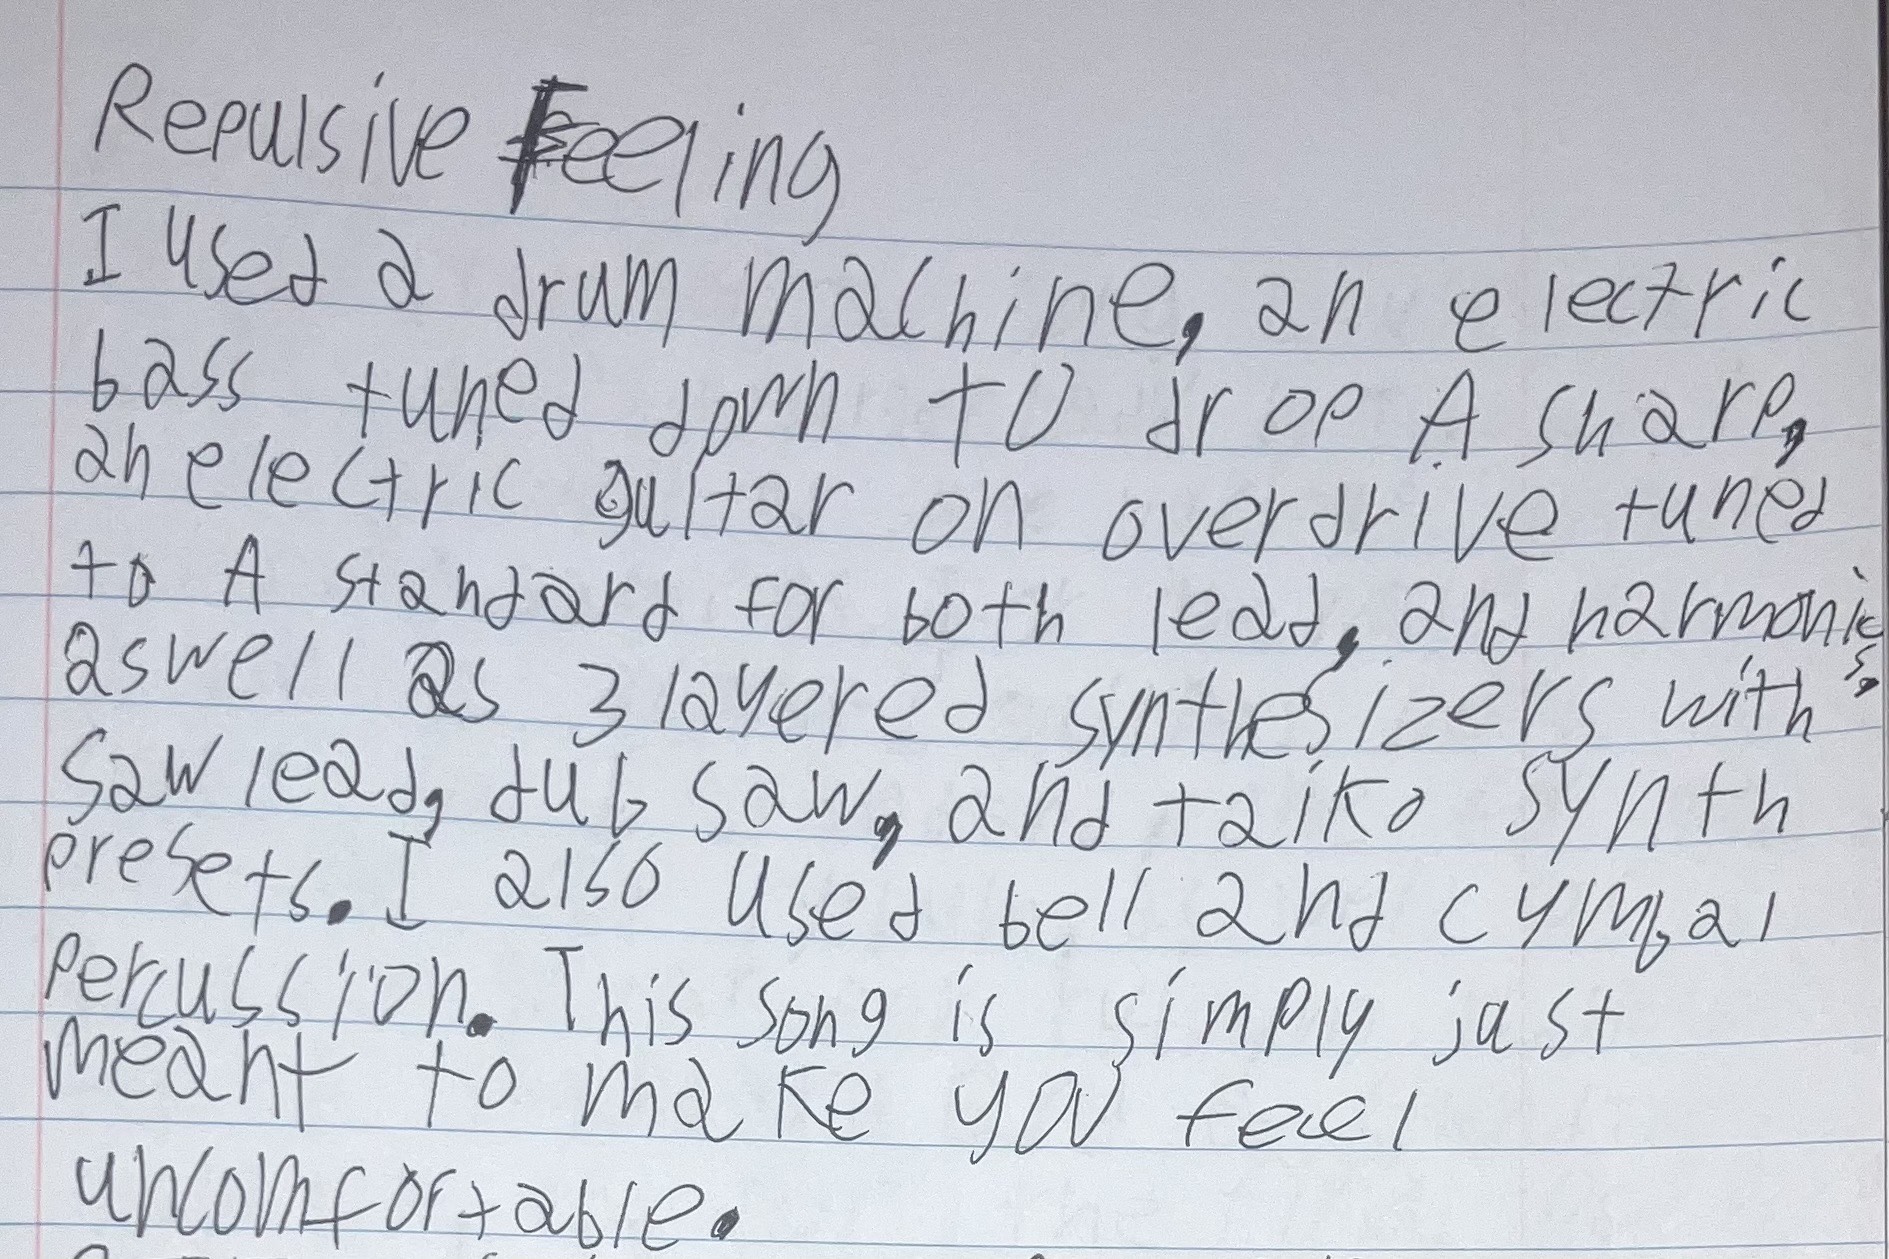 Repulsive Feeling
I used a drum machine, an electric
bass tuned down to drop A sharp,
an electric guitar on overdrive tuned
to A standard for both lead, and harmonics,
aswell as 3 layered synthesizers with
saw lead, dub saw, and taiko synth
presets. I also used bell and cymbal
percussion. This song is simply just
meant to make you feel
uncomfortable.